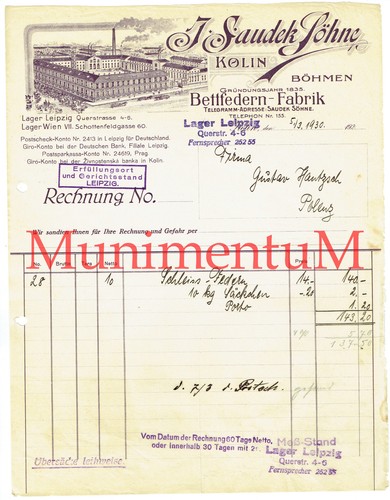 J. Saudek Söhne
KOLIN
BÖHMEN
GRÜNDUNGSJAHR 1835.
Bettfedern-Fabrik
TELEGRAMM-ADRESSE SAUDEK SÖHNE.
TELEPHON No. 153.
Lager Leipzig Querstrasse 4-6.
Lager Wien VII. Schottenfeldgasse 60.
Lager Leipzig
Querstr. 4-6
Fernsprecher 262 55
5/3. 1930.
Postscheck-Konto Nr. 2413 in Leipzig für Deutschland.
Giro-Konto bei der Deutschen Bank, Filiale Leipzig.
Postsparkassa-Konto Nr. 24619, Prag.
Giro-Konto bei der Živnostenská banka in Kolin.
Erfüllungsort
und Gerichtsstand
LEIPZIG.
Firma
Gustav Hentzsch
Rechnung No.
Wir sandten Ihnen für Ihre Rechnung und Gefahr per
MunimentuM
No. Brutto Tara Netto Preis
28 10 Schleiss-Federn 14.- 140.-
10 kg Säckchen -20 2.-
Porto 1.20
143.20
d. 7/3 d. Postsch.
Vom Datum der Rechnung 60 Tage Netto,
oder innerhalb 30 Tagen mit
Meß-Stand
Lager Leipzig
Querstr. 4-6
Fernsprecher 262 55
Übersäcke leihweise.